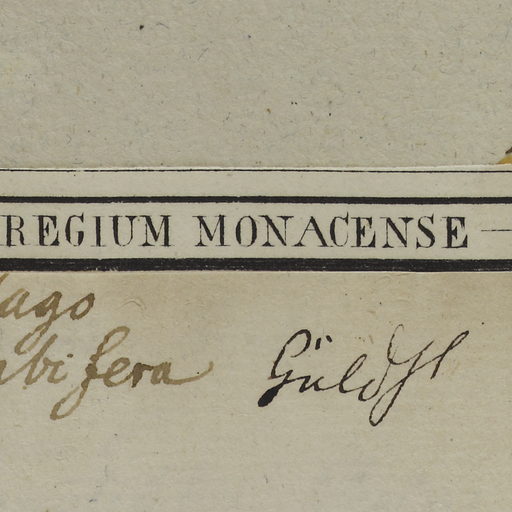 REGIUM MONACENSE
lago
bifera